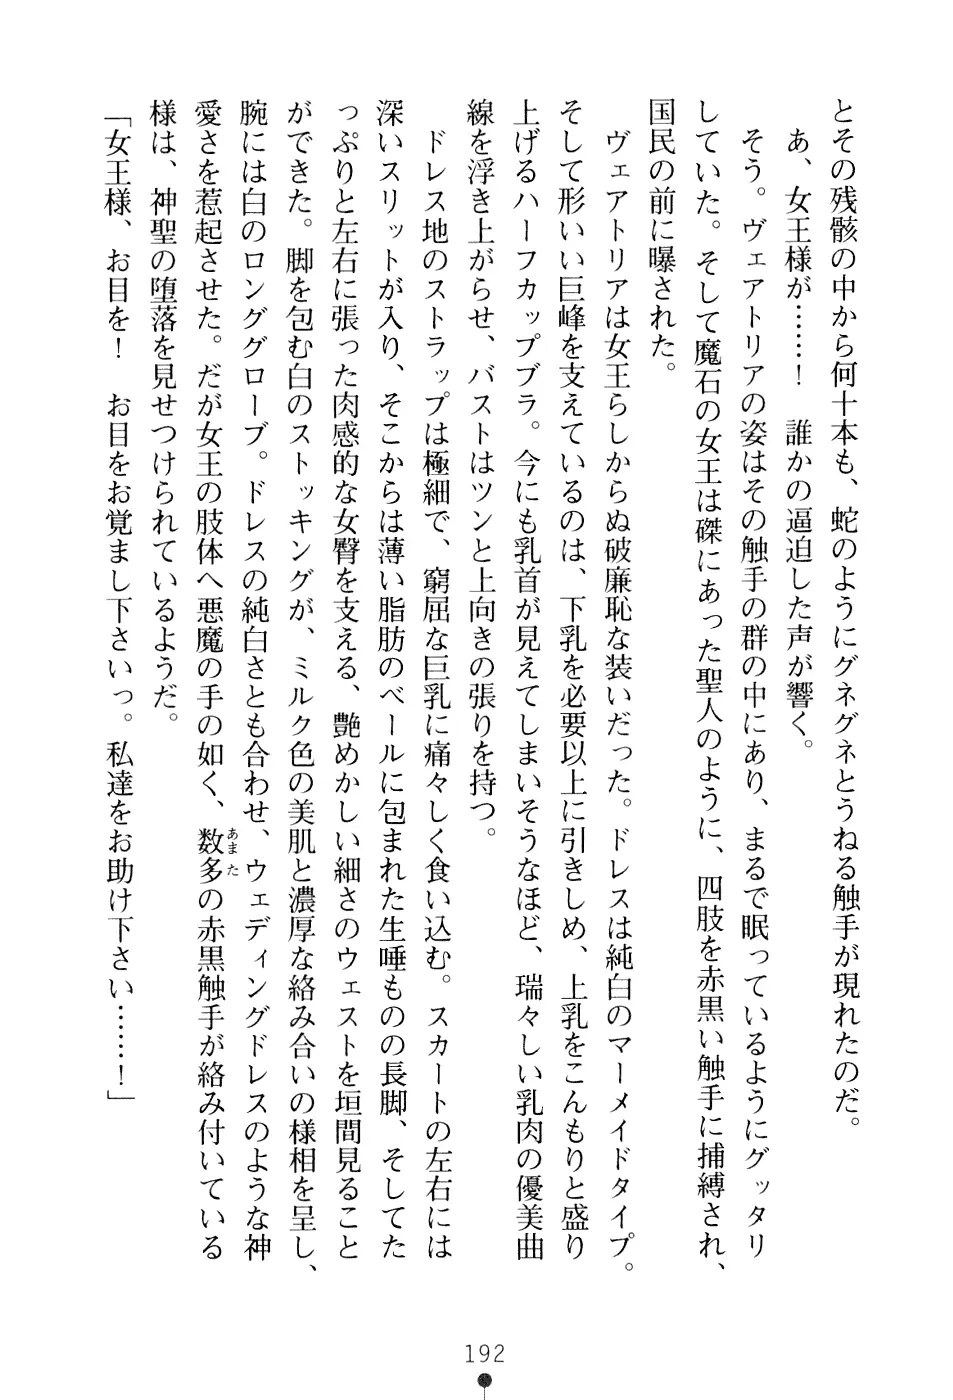 とその残骸の中から何十本も、蛇のようにグネグネとうねる触手が現れたのだ。
　あ、女王様が……！　誰かの逼迫した声が響く。
　そう。ヴェアトリアの姿はその触手の群の中にあり、まるで眠っているようにグッタリ
していた。そして魔石の女王は磔にあった聖人のように、四肢を赤黒い触手に捕縛され、
国民の前に曝された。
　ヴェアトリアは女王らしからぬ破廉恥な装いだった。ドレスは純白のマーメイドタイプ。
そして形いい巨峰を支えているのは、下乳を必要以上に引きしめ、上乳をこんもりと盛り
上げるハーフカップブラ。今にも乳首が見えてしまいそうなほど、瑞々しい乳肉の優美曲
線を浮き上がらせ、バストはツンと上向きの張りを持つ。
　ドレス地のストラップは極細で、窮屈な巨乳に痛々しく食い込む。スカートの左右には
深いスリットが入り、そこからは薄い脂肪のベールに包まれた生唾ものの長脚、そしてた
っぷりと左右に張った肉感的な女臀を支える、艶めかしい細さのウェストを垣間見ること
ができた。脚を包む白のストッキングが、ミルク色の美肌と濃厚な絡み合いの様相を呈し、
腕には白のロンググローブ。ドレスの純白さとも合わせ、ウェディングドレスのような神
愛さを惹起させた。だが女王の肢体へ悪魔の手の如く、数多の赤黒触手が絡み付いている
様は、神聖の堕落を見せつけられているようだ。
「女王様、お目を！　お目をお覚まし下さいっ。私達をお助け下さい……！」
あまた
192